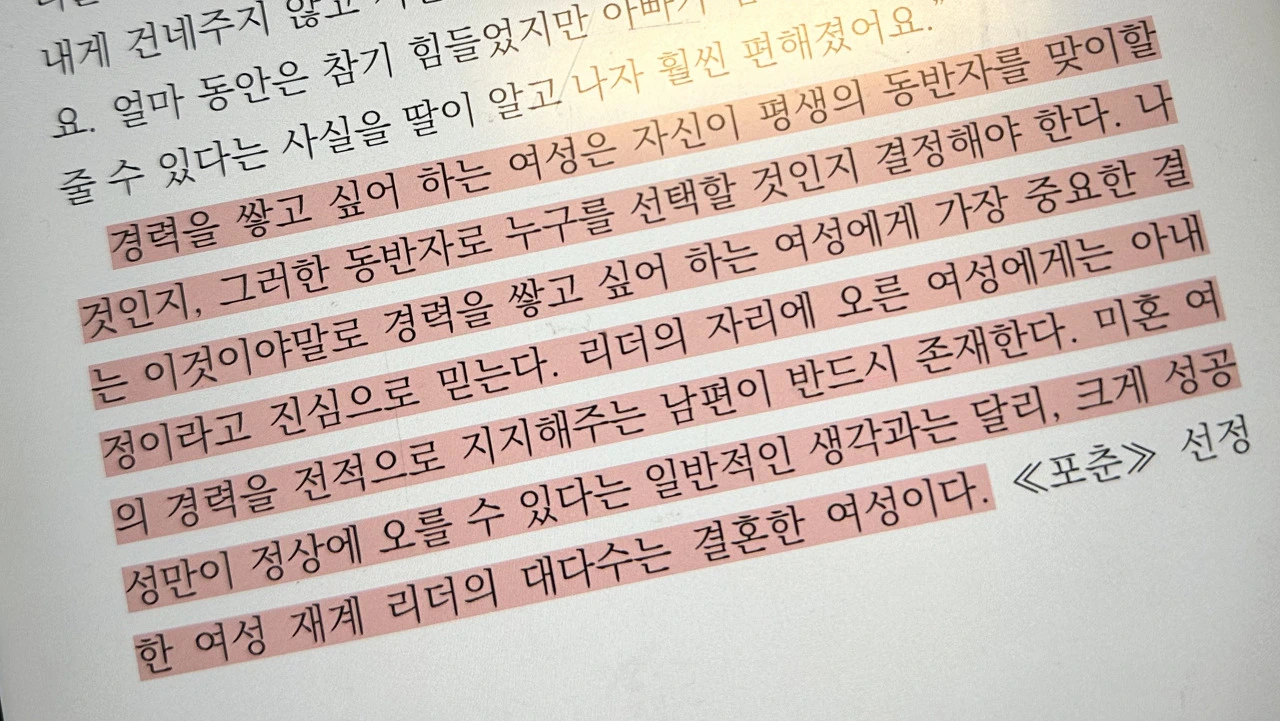 내게 건네주지 않고
요. 얼마 동안은 참기 힘들었지만 아빠가
줄 수 있다는 사실을 딸이 알고 나자 훨씬 편해졌어요.”
경력을 쌓고 싶어 하는 여성은 자신이 평생의 동반자를 맞이할
것인지, 그러한 동반자로 누구를 선택할 것인지 결정해야 한다. 나
는 이것이야말로 경력을 쌓고 싶어 하는 여성에게 가장 중요한 결
정이라고 진심으로 믿는다. 리더의 자리에 오른 여성에게는 아내
의 경력을 전적으로 지지해주는 남편이 반드시 존재한다. 미혼 여
성만이 정상에 오를 수 있다는 일반적인 생각과는 달리, 크게 성공
한 여성 재계 리더의 대다수는 결혼한 여성이다. ≪포춘≫ 선정